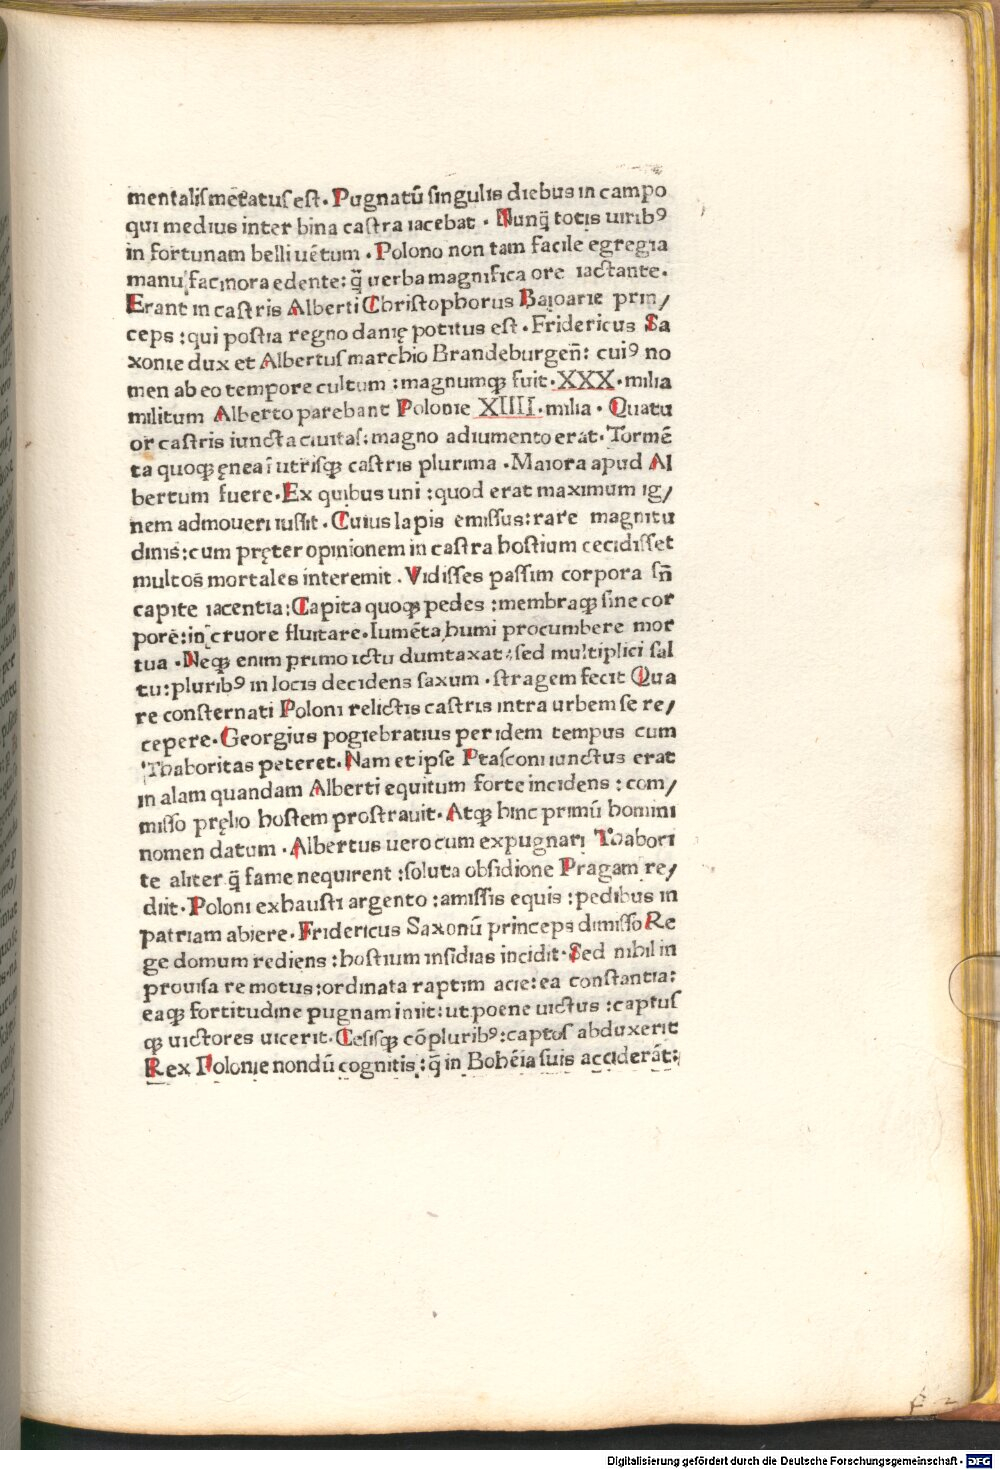 mentaliſ metatuſ eſt. Pugnatū ſingulis diebus in campo
qui medius inter bina caſtra iacebat. Nunq̃ totis uirib⁹
in fortunam belli uētum. Polono non tam facile egregia
manu facinora edente: q̃ uerba magnifica ore iactante.
Erant in caſtris Alberti Chriſtophorus Baioarie prin/
ceps: qui poſtia regno danię potitus eſt. Fridericus Sa
xonie dux et Albertuſ marchio Brandeburgeñ: cui⁹ no
men ab eo tempore cultum: magnumqꝫ fuit. XXX. milia
militum Alberto parebant Polonie XIIII. milia. Quatu
or caſtris iuncta ciuitaſ: magno adiumento erat. Tormē
ta quoqꝫ ęnea ī utriſqꝫ caſtris plurima. Maiora apud Al
bertum fuere. Ex quibus uni: quod erat maximum ig/
nem admoueri iuſſit. Cuius lapis emiſſus: rare magnitu
dinis: cum pręter opinionem in caſtra hoſtium cecidiſſet
multos mortales interemit. Vidiſſes paſſim corpora ſñ
capite iacentia: Capita quoqꝫ pedes: membraqꝫ ſine cor
pore: in cruore fluitare. Iumēta humi procumbere mor
tua. Neqꝫ enim primo ictu dumtaxat: ſed multiplici ſal
tu: plurib⁹ in locis decidens ſaxum. ſtragem fecit Qua
re conſternati Poloni relictis caſtris intra urbem ſe re/
cepere. Georgius pogiebratius per idem tempus cum
Thaboritas peteret. Nam et ipſe Ptaſconi iunctus erat
in alam quandam Alberti equitum forte incidens: com/
miſſo pręlio hoſtem proſtrauit. Atqꝫ hinc primū homini
nomen datum. Albertus uero cum expugnari Thabori
te aliter q̃ fame nequirent: ſoluta obſidione Pragam re/
diit. Poloni exhauſti argento: amiſſis equis: pedibus in
patriam abiere. Fridericus Saxonū princeps dimiſſo Re
ge domum rediens: hoſtium inſidias incidit. Sed nihil in
prouiſa re motus: ordinata raptim acie: ea conſtantia:
eaqꝫ fortitudine pugnam iniit: ut poene uictus: captuſ
qꝫ uictores uicerit. Ceſiſqꝫ cōplurib⁹: captoſ abduxerit
Rex Polonie nondū cognitis: q̃ in Bohēia ſuis acciderāt:
Digitalisierung gefördert durch die Deutsche Forschungsgemeinschaft - DFG